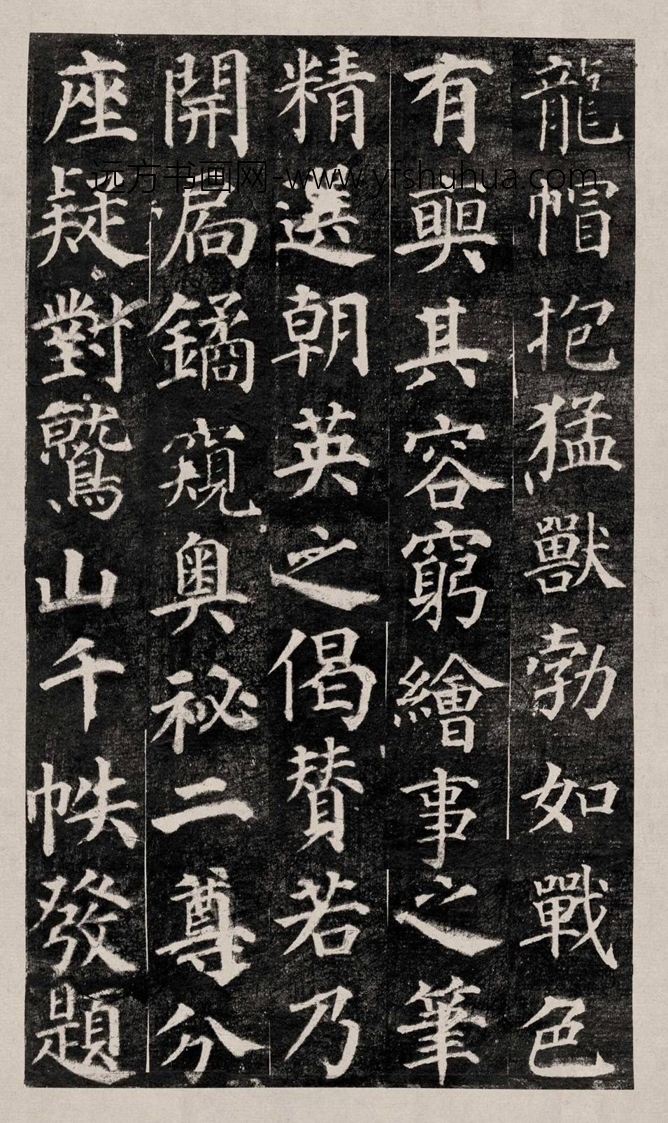 龍帽抱猛獸勃如戰色
有興其容窮繪事之筆
精選朝英之偈賛若乃
開扃鐍窺奧祕二尊分
座疑對鷲山千帙發題
远方书画网-www.yfshuhua.com